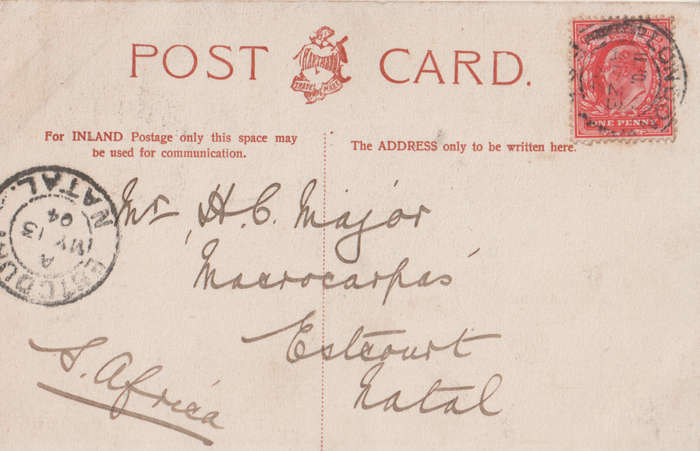 POST CARD.
HARTMANN
TRADE MARK
For INLAND Postage only this space may
be used for communication.
The ADDRESS only to be written here.
ONE PENNY
ESTCOURT
NATAL
A
MY 13
04
Mr H. C. Major
"Macrocarpas"
Estcourt
Natal
S. Africa